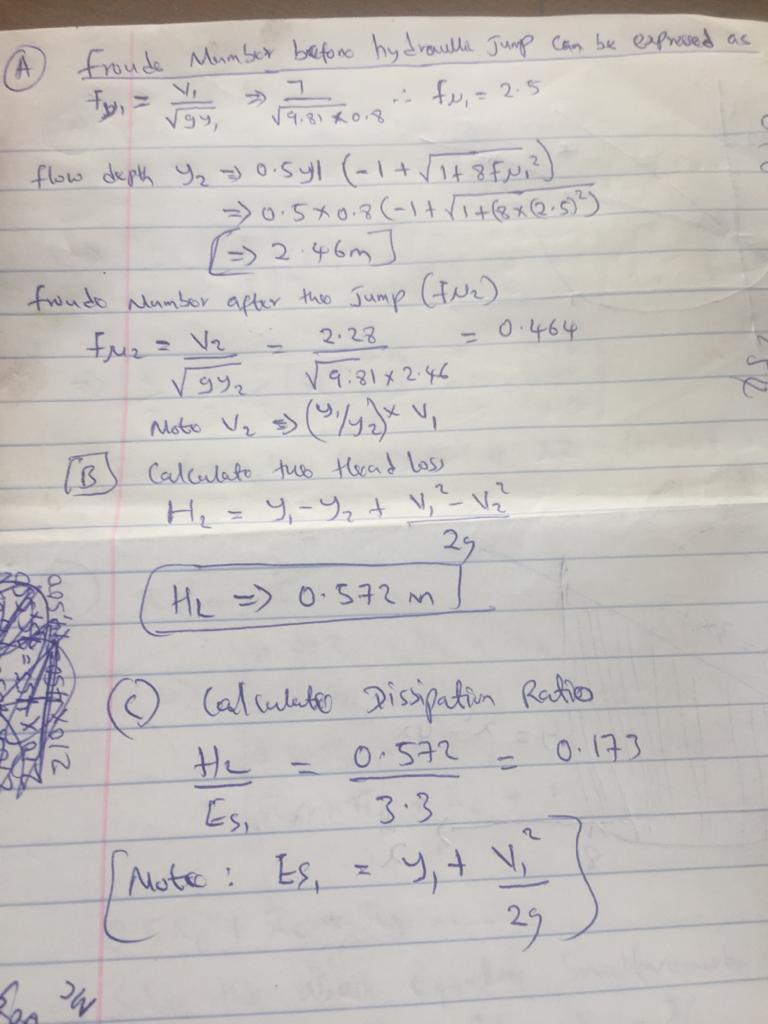 A Froude Number before hydraulic jump can be expressed as
FN₁ = V₁/√gy₁ ⇒ 7/√9.81 × 0.8 ∴ FN₁ = 2.5
flow depth y₂ ⇒ 0.5y1 (-1 + √1 + 8FN₁²)
⇒ 0.5 × 0.8 (-1 + √1 + (8 × (2.5)²)
[⇒ 2.46m]
Froude Number after the Jump (FN2)
FN2 = V₂/√gy₂ = 2.28/√9.81 × 2.46 = 0.464
Note V₂ ⇒ (y₁/y₂) × V₁
[B] Calculate the Head Loss
HL = y₁ - y₂ + V₁² - V₂²/2g
HL ⇒ 0.572 m
C Calculate Dissipation Ratio
HL/Es₁ = 0.572/3.3 = 0.173
[Note: Es₁ = y₁ + V₁²/2g]